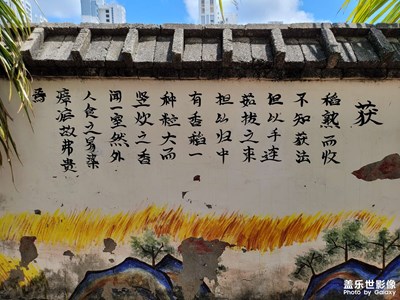 获
稻熟而收
不知获法
但以手逐
茹拔之束
担以归中
有香稻一
种粒大而
坚炊之香
闻一室然外
人食之易染
瘴疟故弗贵
焉
盖乐世影像
Photo by @ Galaxy